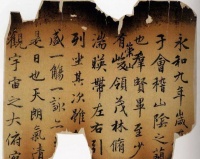 永和九年歲
于會稽山陰之
也羣賢畢至少
有崇山峻領茂林脩
湍暎帶左右引
列坐其次雖
盛一觴一詠
是日也天朗氣清
觀宇宙之大俯察